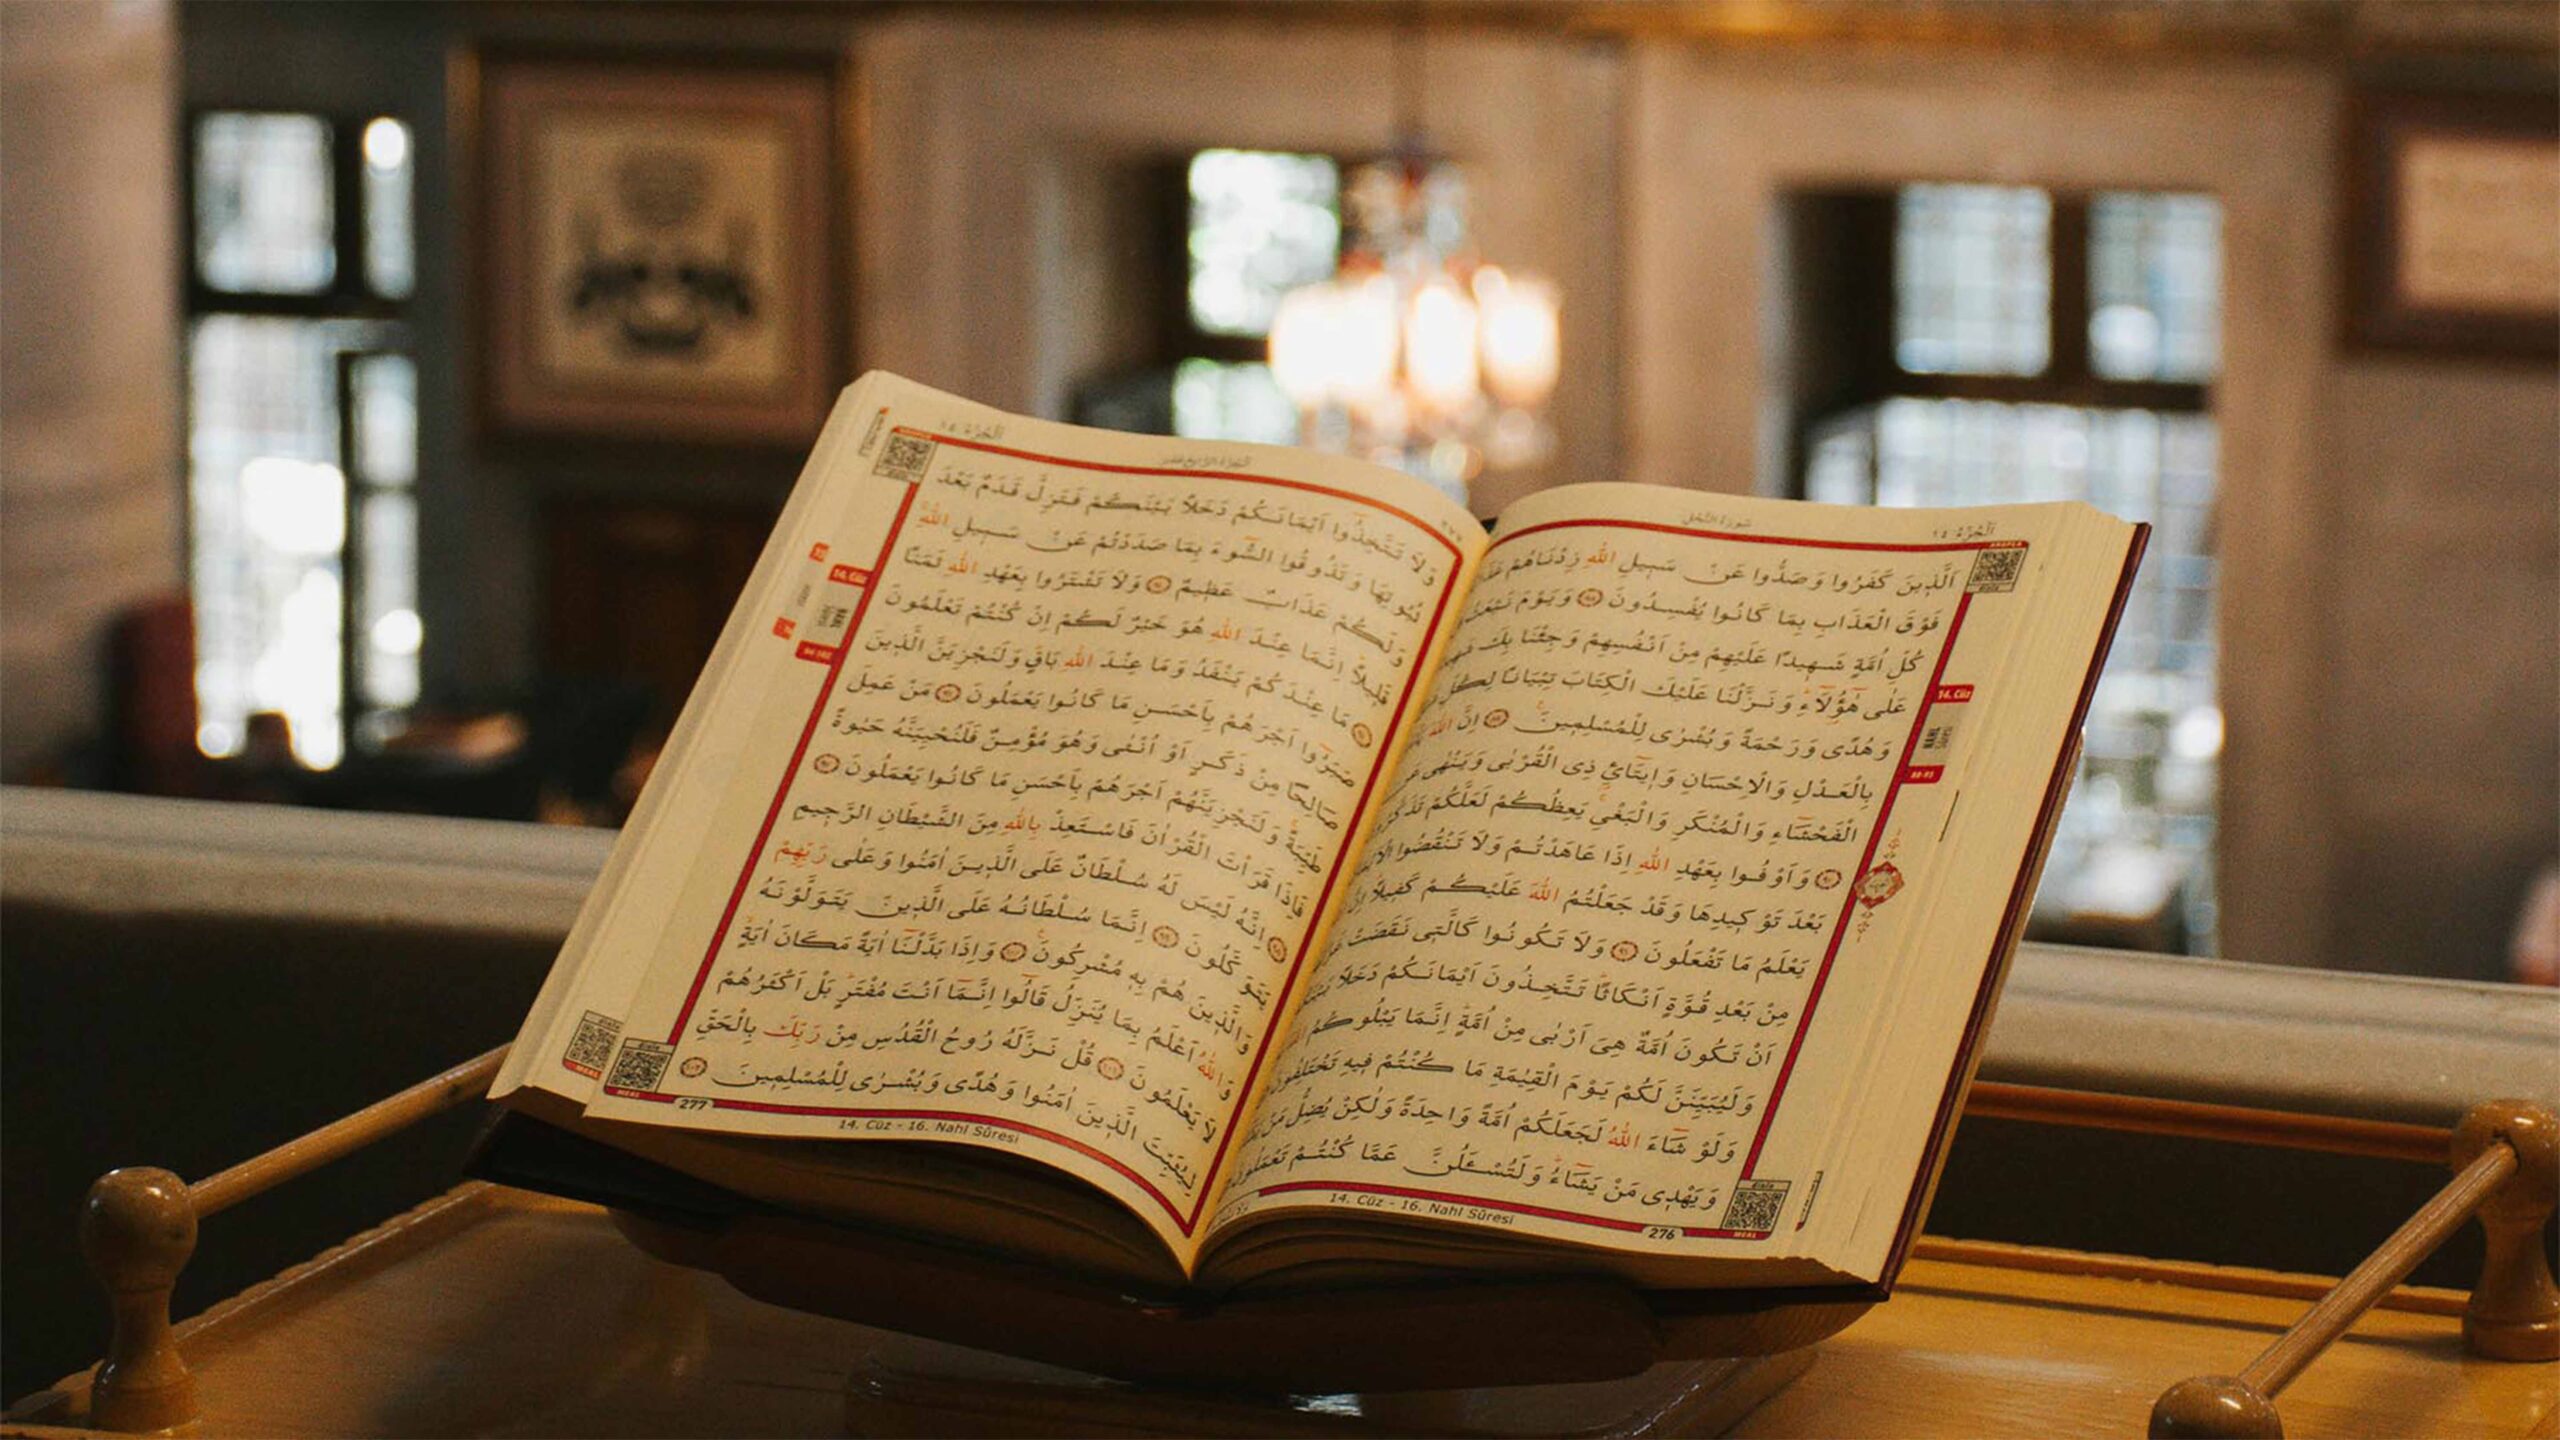 اَلْجُزْءُ ١٤
سُورَةُ النَّحْلِ
اَلَّذِينَ كَفَرُوا وَصَدُّوا عَنْ سَبِيلِ اللّٰهِ زِدْنَاهُمْ
فَوْقَ الْعَذَابِ بِمَا كَانُوا يُفْسِدُونَ ﴿٨٨﴾ وَيَوْمَ نَبْعَثُ
كُلِّ اُمَّةٍ شَهِيدًا عَلَيْهِمْ مِنْ اَنْفُسِهِمْ وَجِئْنَا بِكَ
عَلٰى هٰٓؤُ۬لَٓاءِۜ وَنَزَّلْنَا عَلَيْكَ الْكِتَابَ تِبْيَانًا لِكُلِّ
وَهُدًى وَرَحْمَةً وَبُشْرٰى لِلْمُسْلِمِينَ۟ ﴿٨٩﴾ اِنَّ اللّٰهَ
بِالْعَدْلِ وَالْاِحْسَانِ وَا۪يتَٓائِ ذِي الْقُرْبٰى وَيَنْهٰى
الْفَحْشَٓاءِ وَالْمُنْكَرِ وَالْبَغْيِۚ يَعِظُكُمْ لَعَلَّكُمْ تَذَكَّرُونَ
﴿٩٠﴾ وَاَوْفُوا بِعَهْدِ اللّٰهِ اِذَا عَاهَدْتُمْ وَلَا تَنْقُضُوا الْاَيْمَانَ
بَعْدَ تَوْكِيدِهَا وَقَدْ جَعَلْتُمُ اللّٰهَ عَلَيْكُمْ كَفِيلًاۜ
يَعْلَمُ مَا تَفْعَلُونَ ﴿٩١﴾ وَلَا تَكُونُوا كَالَّتِي نَقَضَتْ
مِنْ بَعْدِ قُوَّةٍ اَنْكَاثًاۜ تَتَّخِذُونَ اَيْمَانَكُمْ دَخَلًا
اَنْ تَكُونَ اُمَّةٌ هِيَ اَرْبٰى مِنْ اُمَّةٍۜ اِنَّمَا يَبْلُوكُمُ
وَلَيُبَيِّنَنَّ لَكُمْ يَوْمَ الْقِيٰمَةِ مَا كُنْتُمْ فِيهِ تَخْتَلِفُونَ
وَلَوْ شَٓاءَ اللّٰهُ لَجَعَلَكُمْ اُمَّةً وَاحِدَةً وَلٰكِنْ يُضِلُّ مَنْ
وَيَهْدِي مَنْ يَشَٓاءُۜ وَلَتُسْـَٔلُنَّ عَمَّا كُنْتُمْ تَعْمَلُونَ
14. Cüz - 16. Nahl Sûresi
276
14. Cüz
NAHL
Sûresi
88-93
MEAL
اَلْجُزْءُ ١٤
وَلَا تَتَّخِذُٓوا اَيْمَانَكُمْ دَخَلًا بَيْنَكُمْ فَتَزِلَّ قَدَمٌ بَعْدَ
ثُبُوتِهَا وَتَذُوقُوا السُّٓوءَ بِمَا صَدَدْتُمْ عَنْ سَبِيلِ اللّٰهِۚ
وَلَكُمْ عَذَابٌ عَظِيمٌ ﴿٩٤﴾ وَلَا تَشْتَرُوا بِعَهْدِ اللّٰهِ ثَمَنًا
قَلِيلًاۜ اِنَّمَا عِنْدَ اللّٰهِ هُوَ خَيْرٌ لَكُمْ اِنْ كُنْتُمْ تَعْلَمُونَ
﴿٩٥﴾ مَا عِنْدَكُمْ يَنْفَدُ وَمَا عِنْدَ اللّٰهِ بَاقٍۜ وَلَنَجْزِيَنَّ الَّذِينَ
صَبَرُٓوا اَجْرَهُمْ بِاَحْسَنِ مَا كَانُوا يَعْمَلُونَ ﴿٩٦﴾ مَنْ عَمِلَ
صَالِحًا مِنْ ذَكَرٍ اَوْ اُنْثٰى وَهُوَ مُؤْمِنٌ فَلَنُحْيِيَنَّهُ حَيٰوةً
طَيِّبَةًۚ وَلَنَجْزِيَنَّهُمْ اَجْرَهُمْ بِاَحْسَنِ مَا كَانُوا يَعْمَلُونَ ﴿٩٧﴾
فَاِذَا قَرَأْتَ الْقُرْاٰنَ فَاسْتَعِذْ بِاللّٰهِ مِنَ الشَّيْطَانِ الرَّجِيمِ
﴿٩٨﴾ اِنَّهُ لَيْسَ لَهُ سُلْطَانٌ عَلَى الَّذِينَ اٰمَنُوا وَعَلٰى رَبِّهِمْ
يَتَوَكَّلُونَ ﴿٩٩﴾ اِنَّمَا سُلْطَانُهُ عَلَى الَّذِينَ يَتَوَلَّوْنَهُ
وَالَّذِينَ هُمْ بِهِ مُشْرِكُونَ۟ ﴿١٠٠﴾ وَاِذَا بَدَّلْنَٓا اٰيَةً مَكَانَ اٰيَةٍۙ
وَاللّٰهُ اَعْلَمُ بِمَا يُنَزِّلُ قَالُٓوا اِنَّمَٓا اَنْتَ مُفْتَرٍۜ بَلْ اَكْثَرُهُمْ
لَا يَعْلَمُونَ ﴿١٠١﴾ قُلْ نَزَّلَهُ رُوحُ الْقُدُسِ مِنْ رَبِّكَ بِالْحَقِّ
لِيُثَبِّتَ الَّذِينَ اٰمَنُوا وَهُدًى وَبُشْرٰى لِلْمُسْلِمِينَ ﴿١٠٢﴾
277
14. Cüz - 16. Nahl Sûresi
14. Cüz
NAHL
94-102
MEAL
MEAL